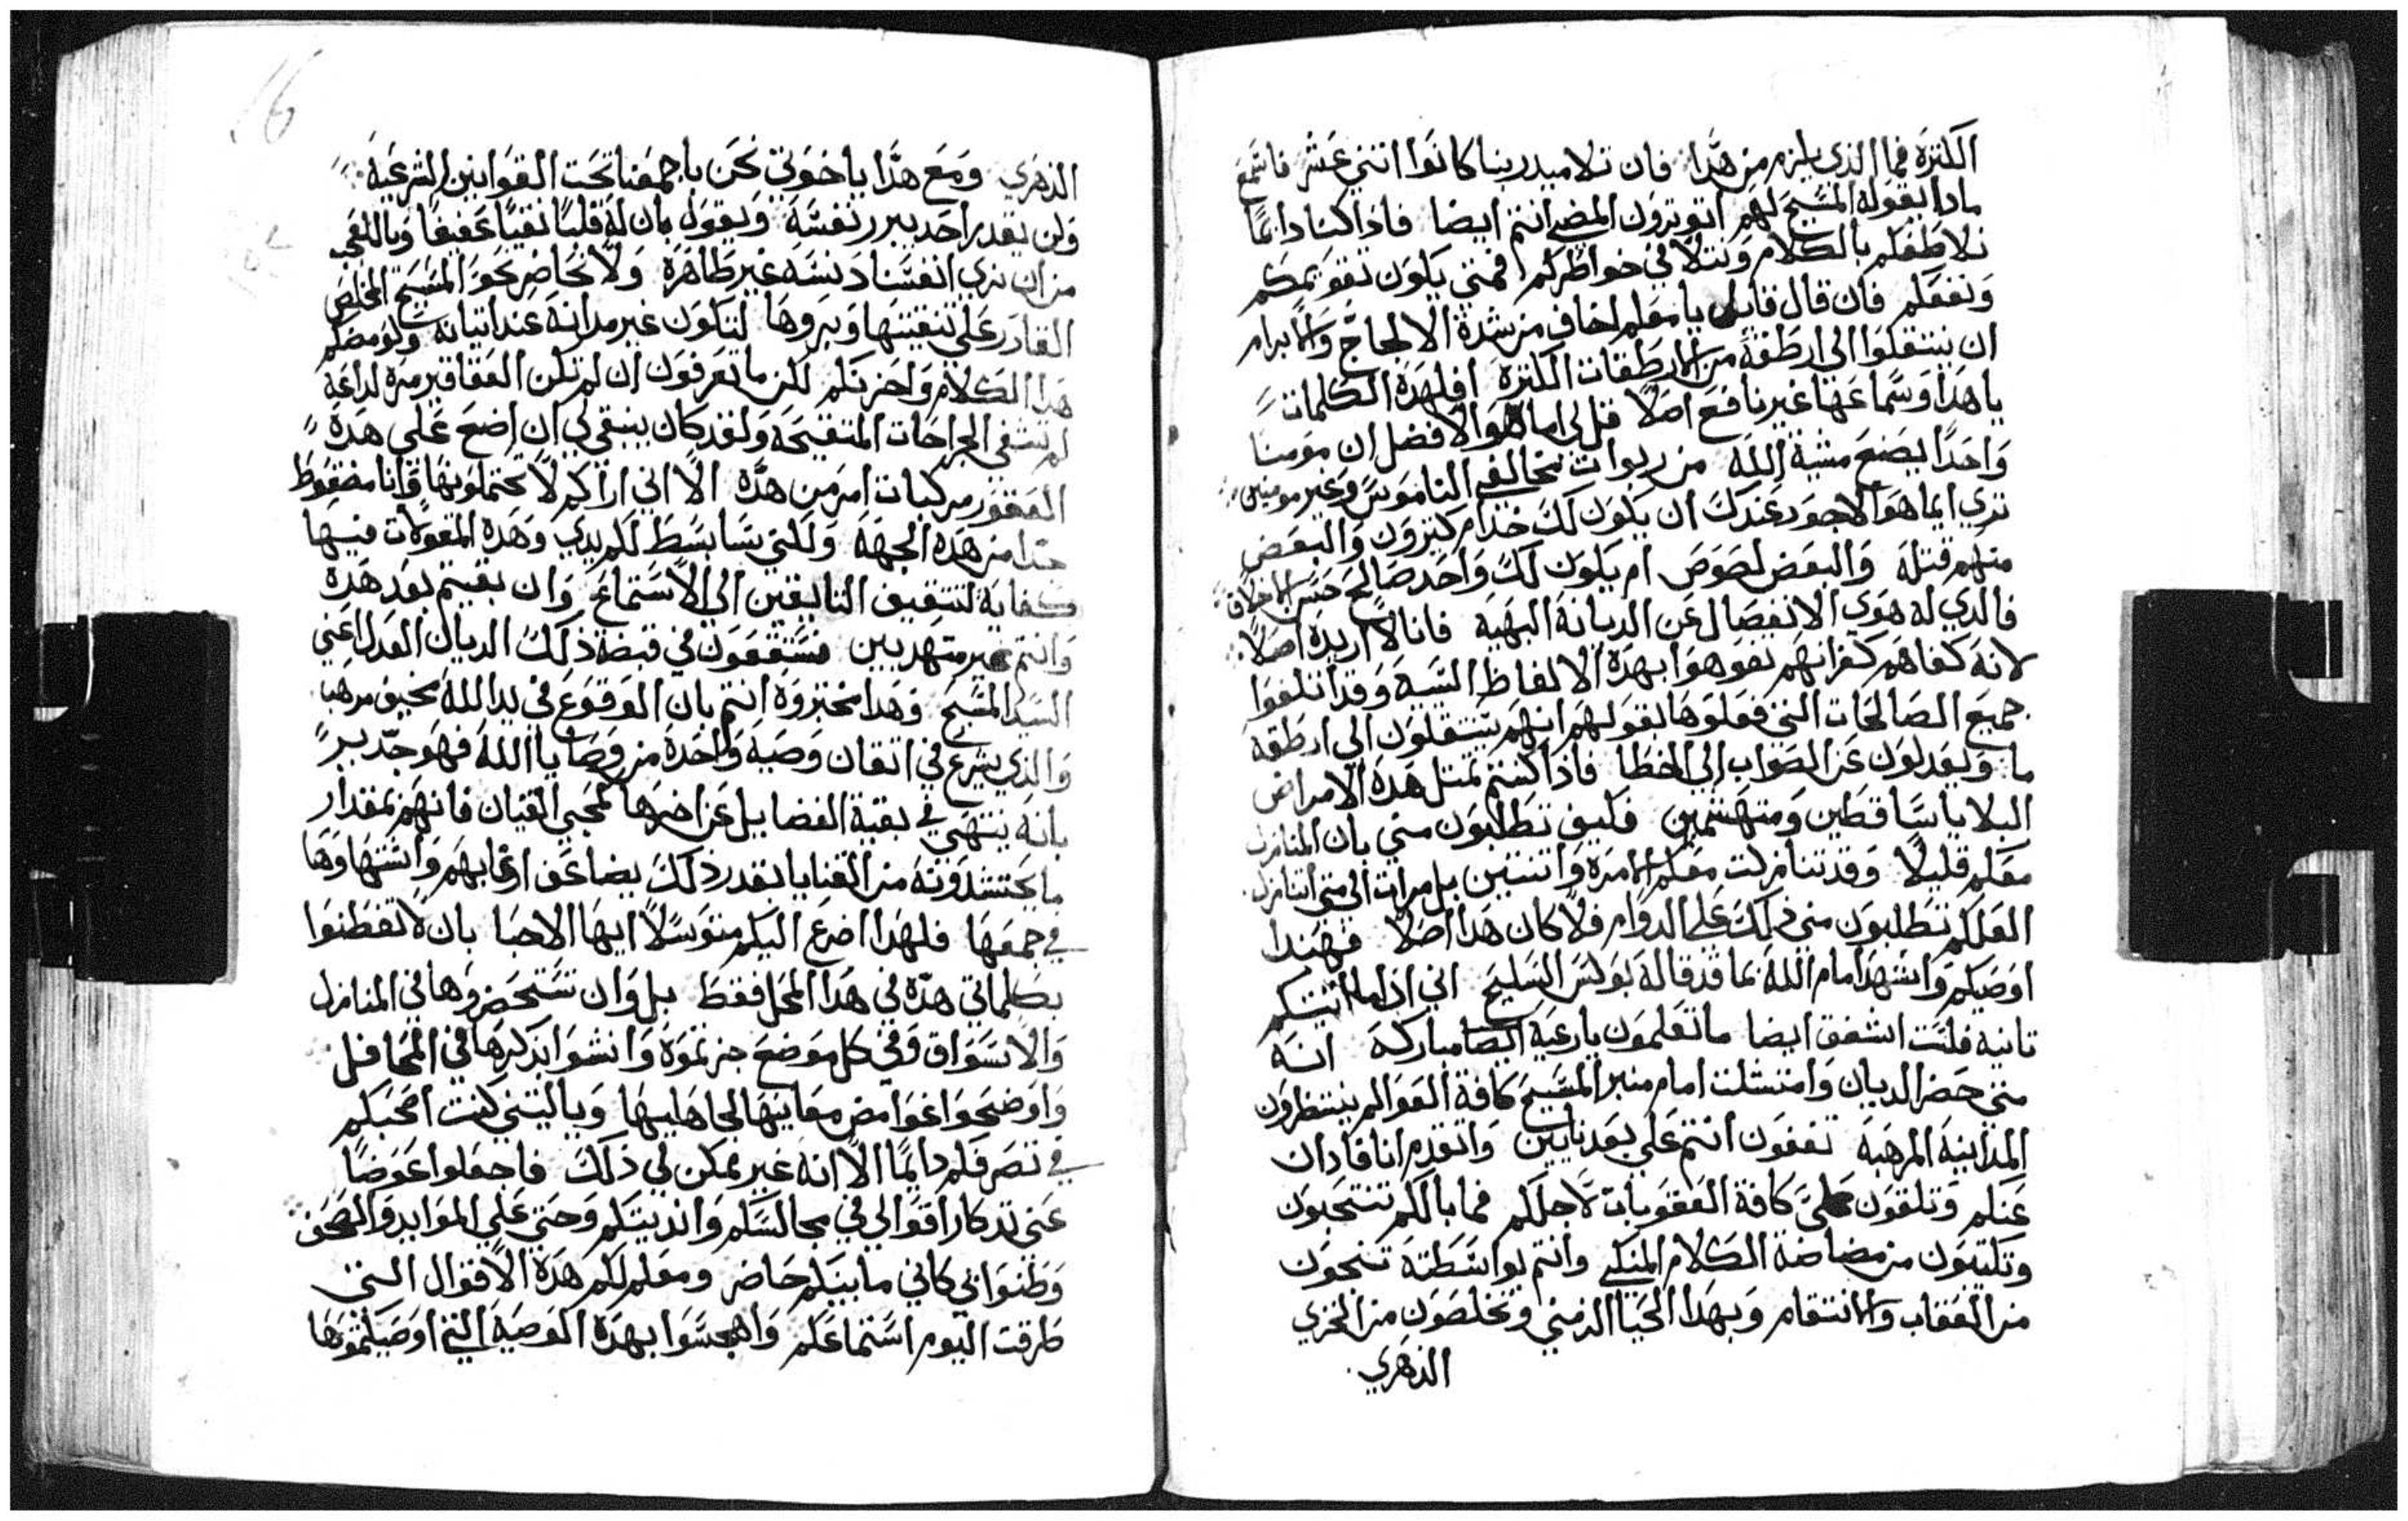 الكثرة فما الذي يلزم من هذا فان تلاميد ربنا كانوا اتني عشر فاسمع
مادا يقوله المسيح لهم اتوترون المضي انتم ايضا فادا كنا دايما
نلاطفكم بالكلام ونتلافي خواطركم فمتي يكون تقويمكم
ونفعكم فان قال قايل يا معلم اخاف من شدة الالجاج والابرام
ان ينتقلوا الي ارطقة من الارطقات الكثرة افلهذه الكلمات
يا هدا وسماعها غير نافع اصلا قل لي اما هو الافضل ان مومنا
واحدا يصنع مشية الله من ربوات مخالفي الناموس وغير مومنين
تري ايما هو الاجود عندك ان يكون لك خدام كتيرون والبعض
منهم قتله والبعض لصوص ام يكون لك واحد صالح حسن الاخلاق
فالدي له هوي الانفصال عن الديانة البهية فانا لا اريده اصلا
لانه كفاهم كفرانهم تفوهوا بهده الالفاظ السية وقد اتلفوا
جميع الصالحات التي فعلوها بقولهم انهم ينتقلون الي ارطقة
ما ويعدلون عن الصواب الي الخطا فادا كنتم بمتل هده الامراض
البلايا ساقطين ومتهشمين فكيف تطلبون مني بان اتنازل
معكم قليلا وقد تنازلت معكم لا مرة واتنتين بل مرات الي متي اتنازل
العلكم تطلبون مني دلك علي الدوام فلا كان هدا اصلا فهندا
اوصيكم واشهد امام الله بما قد قاله بولس السليح اني ادا ما اتيتكم
تانية فلست اشفق ايضا ما تعلمون يا رعية ايضا مباركه انه
متي حضر الديان وامتتلت امام منبر المسيح كافة العوالم ينتظرون
المداينة المرهبة تقفون انتم علي بعد نايين واتقدم انا فادان
عنكم وتلقون علي كافة العقوبات لاجلكم فما بالكم تنتحبون
وتكتيبون من مضاضة الكلام المنكي وانتم بواسطته تنجون
من العقاب والانتقام وبهدا الحيا الزمني وتخلصون من الخزي
الدهري
الدهري ومع هدا يا اخوتي نحن باجمعنا تحت القوانين الشرعية
ولن يقدر احد يبرر نفسه ويقول بان له قلبا نقيا عفيفا ويا للعجب
من ان نري انفسنا دنسه غير طاهره ولا نحاضر نحو المسيح المخلص
القادر علي تنقيتها وبروها لتكون غير مدانة عند اتيانه ولو مضكم
هدا الكلام واحزنكم لكن ما تعرفون ان لم تكن العقاقير مره لداعة
لم تشفي الجراحات المتقيحة ولقد كان ينبغي لي ان اضع علي هده
العقور مركبات امر من هده الا اني اراكم لا تحتملونها وانا مضغوط
جدا من هده الجهة ولكني سابسط لكم يدي وهده المقولات فيها
كفاية لتتقيف التايقين الي الاستماع وان بقيتم بعد هده
وانتم غير متهدبين فستقعون في قبضة دلك الديان العدل اعني
السيد المسيح وهدا مختبروه انتم بان الوقوع في يد الله مخيف مرهب
والدي يشرع في اتقان وصية واحدة من وصايا الله فهو جدير
بانه ينتهي في بقية الفضايل عن اخرها كمحبي القيان فانهم بمقدار
ما يحتشدونه من القنايا بقدر دلك يضاعف اوعابهم واشتهاوها
في جمعها فلهدا اضرع اليكم متوسلا ايها الاحبا بان لا تفطنوا
بكلماتي هده في هدا المحل فقط بل وان تستحضروها في المنازل
والاسواق وفي كل موضع جزتموه وانشوا بدكرها في المحافل
واوضحوا غوامض معانيها لجاهليها ويا ليتني كنت اصحبكم
في تصرفكم دايما الا انه غير يمكن لي دلك فاجعلوا عوضا
عني تدكار اقوالي في مجالسكم وانديتكم وحتي علي الموايد والصحف
وظنوا بي كاني ما بينكم حاضر ومعلم لكم هده الاقوال التي
طرقت اليوم استماعكم واهجسوا بهده الوصية التي اوصيتموها